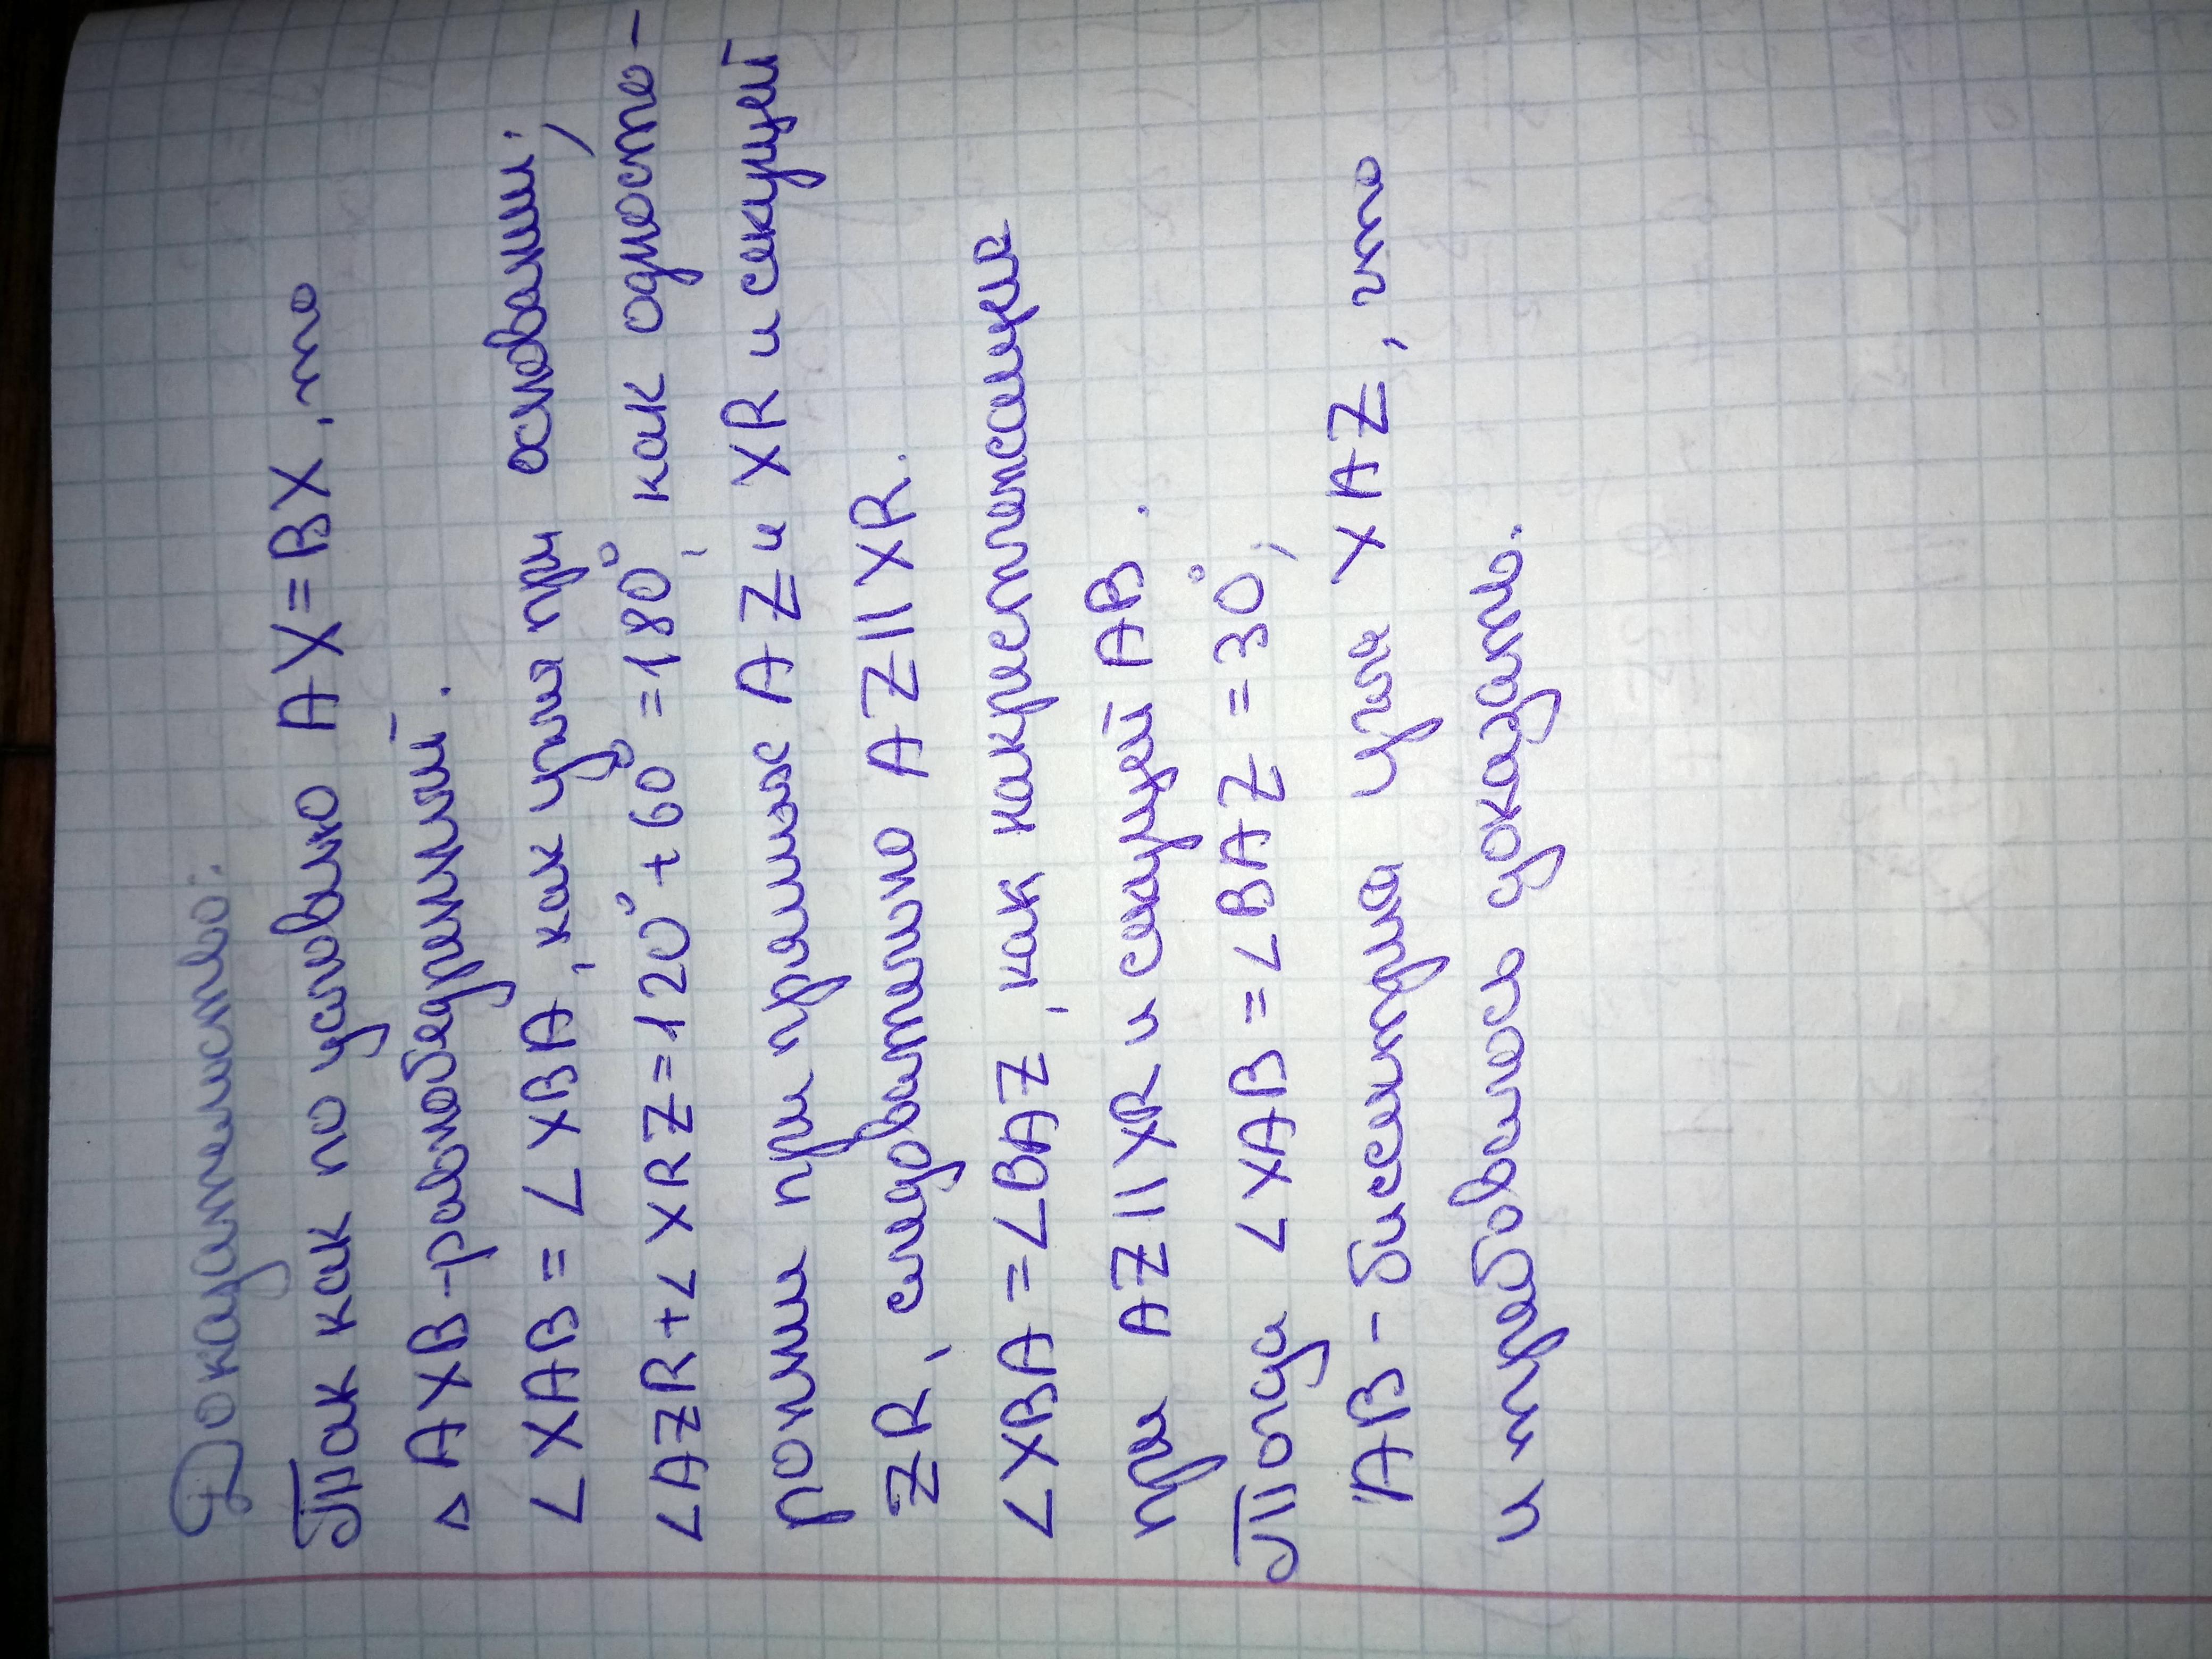 Доказательство:
Так как по условию AX=BX, то
△ AXB-равнобедренный.
∠XAB=∠XBA, как углы при основании;
∠AZR+∠XRZ=120°+60°=180°, как односто-
ронние при прямых AZ и XR и секущей
ZR, следовательно AZ||XR.
∠XBA=∠BAZ, как накрестлежащие
при AZ||XR и секущей AB.
Тогда ∠XAB=∠BAZ=30°,
AB-биссектриса угла XAZ, что
и требовалось доказать.